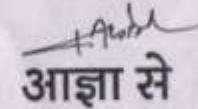 आज्ञा से